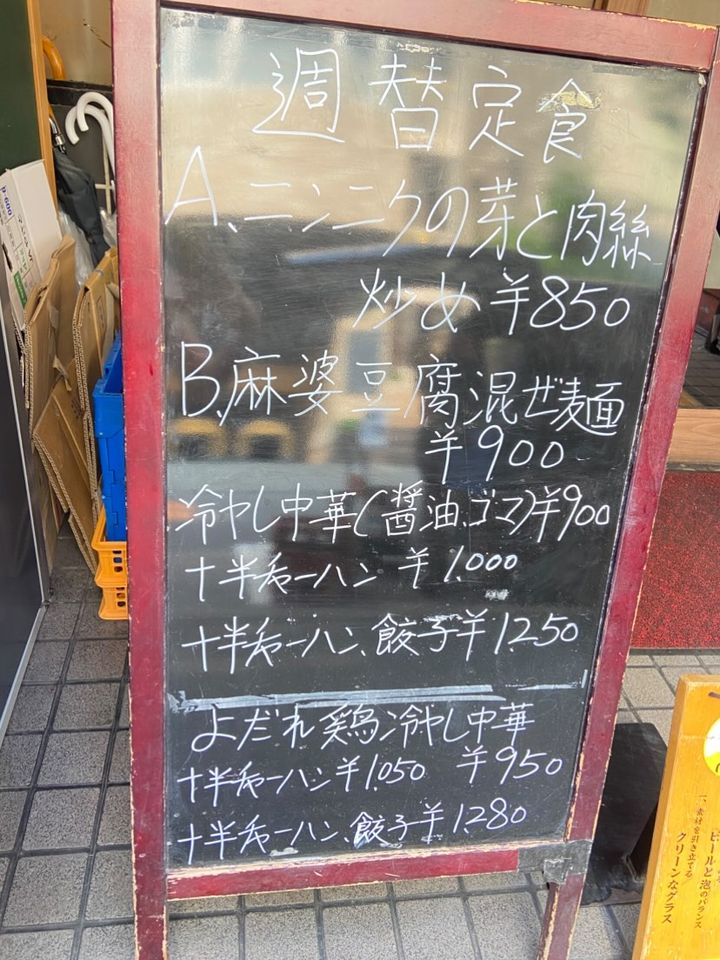 週替定食
A、ニンニクの芽と肉絲
炒め ¥850
B、麻婆豆腐混ぜ麺
¥900
冷やし中華(醤油、ゴマ)¥900
+半チャーハン ¥1.000
+半チャーハン、餃子¥1250
よだれ鶏冷やし中華
¥950
+半チャーハン¥1.050
+半チャーハン、餃子¥1280
P-600
ビールと泡のバランス
一、素材を引き立てる
クリーンなグラス